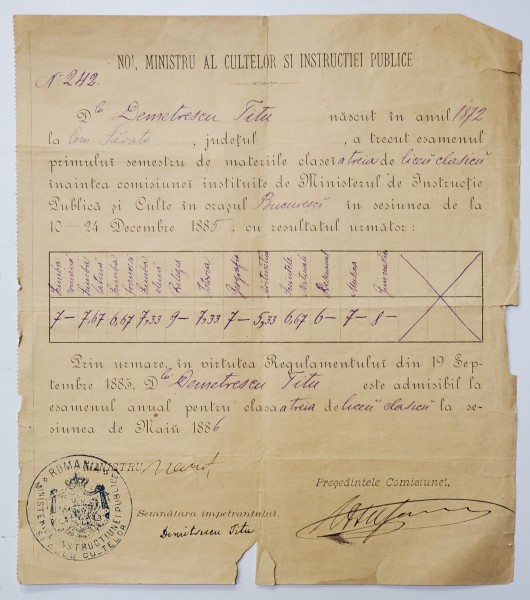 NOI, MINISTRU AL CULTELOR SI INSTRUCTIEI PUBLICE
No 242.
Dlu Demetrescu Titu născut în anul 1872
la Com. Sărata, județul , a trecut esamenul
primului semestru de materiile clasei a treia de liceu clasicu
înaintea comisiunei instituite de Ministerul de Instrucție
Publică și Culte în orașul Bucuresci în sesiunea de la
10—24 Decembre 1885, cu resultatul următor:
Limba romana Limba latina Limba francesa Limba elena Religia Istoria Geografia Aritmetica Sciintele Naturale Desemnul Musica Gimnastica
7— 7,67 6,67 7,33 9— 7,33 7— 5,33 6,67 6— 7— 8—
Prin urmare, în virtutea Regulamentului din 19 Sep-
tembre 1885, Dlu Demetrescu Titu este admisibil la
esamenul anual pentru clasa a treia de liceu clasicu la se-
siunea de Maiŭ 1886
MINISTRU,
Președintele Comisiunei,
Semnătura impetrantului,
Dimitrescu Titu
ROMANIA
MINISTERUL CULTELOR
INSTRUCTIUNEI PUBLICE